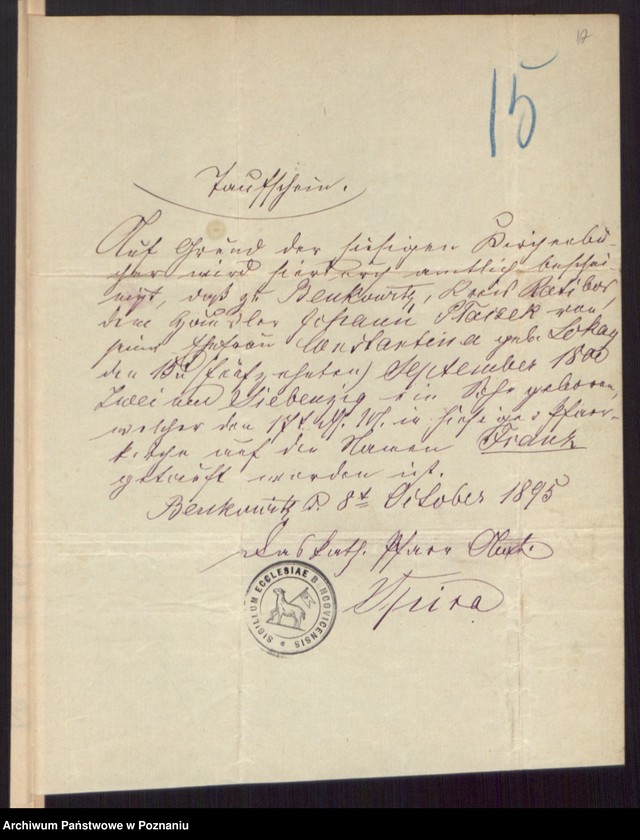 17
15
Taufschein.
Auf Grund der hiesigen Kirchenbü-
cher wird hierdurch amtlich beschei-
nigt, daß zu Benkowitz, Kreis Ratibor
dem Häusler Johann Ptaszek von
seiner Ehefrau Constantina geb. Lokay
den 15t (fünfzehnten) September 18
Zwei und Siebenzig ein Sohn geboren,
welcher den 17t ej. m. in hiesiger Pfarr-
kirche auf den Namen Franz
getauft worden ist.
Benkowitz d. 8t October 1895
Das kath. Pfarr Amt.
SIGILIUM ECCLESIAE B NCOVICENSIS
Archiwum Państwowe w Poznaniu